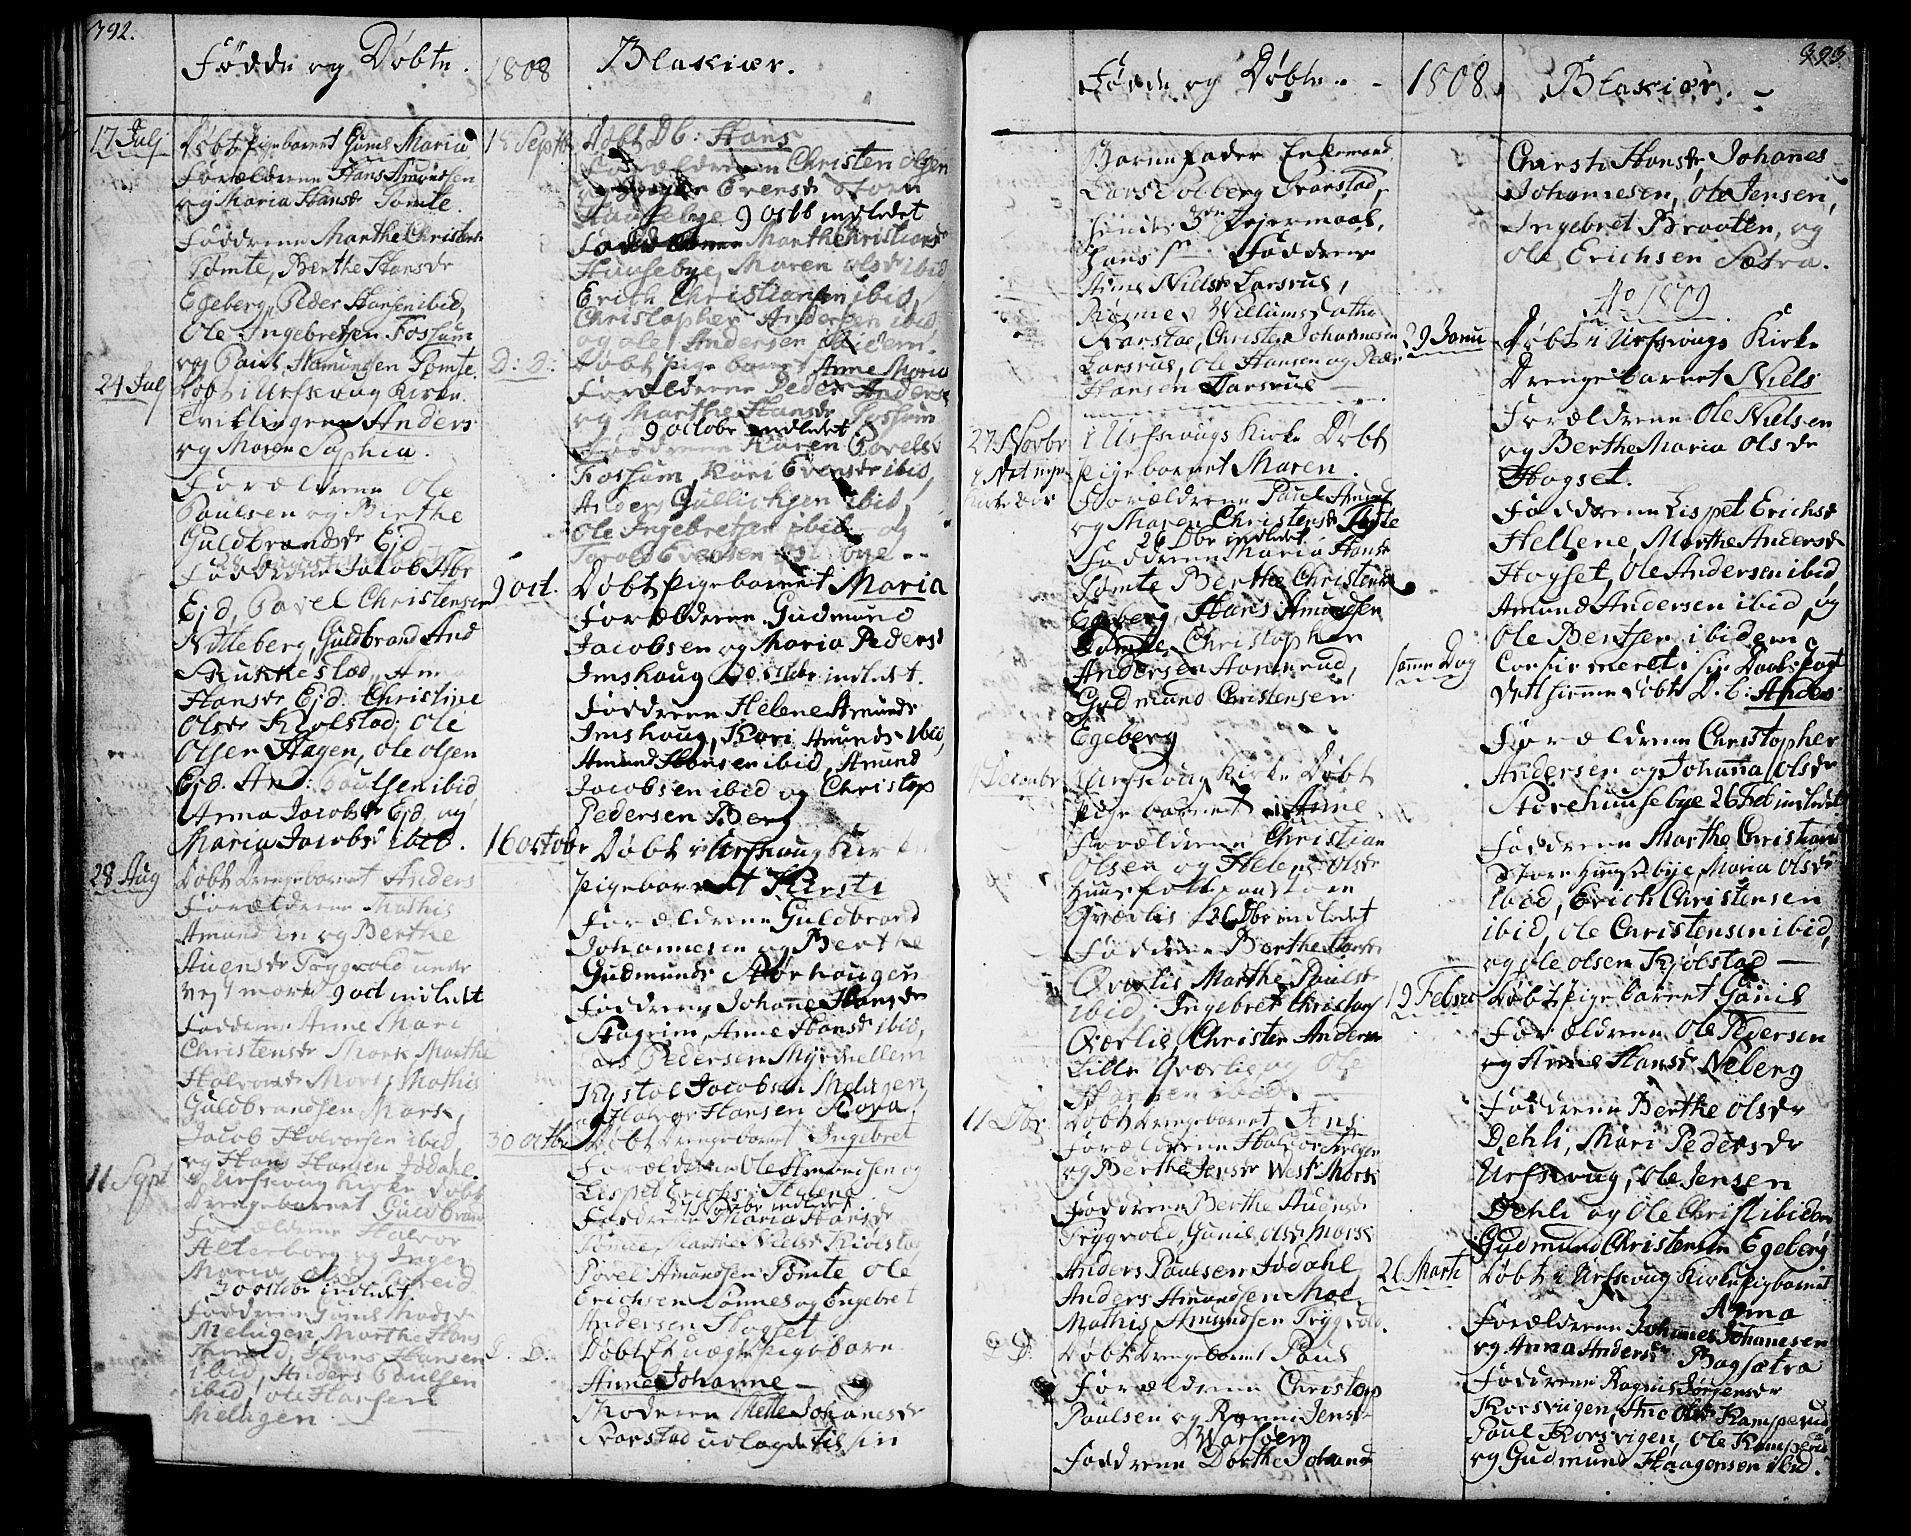 392.
Fødde og Døbte. 1808 Blakiær.
17 Julj
Døbt Pigebarnet Gunil Maria
Forældrene Hans Amundsen
og Maria Hansdr Tømte.
Foddrene Marthe Christensdr
Tømte, Berthe Hansdr
Egeberg, Peder Hansen ibid,
Ole Ingebretsen Fossum
og Paul Hamundsen Tømte.
24 Jul
Døbt i Urskoug Kirke
Tvillingene Anders
og Maren Sophia.
Forældrene Ole
Paulsen og Berthe
Guldbrandsdr Ejd
Foddrene Jacob
Ejd, Pavel Christensen
Nitteberg, Guldbrand And
Rukkestad,
Hansdr Ejd. Christine
Olsdr Kjølstad, Ole
Olsen Hagen, Ole Olsen
Ejd. And: Paulsen ibid
Anna Jacobsdr Ejd, og
Maria Jacobsdr ibid.
28 Aug
Døbt Drengebarnet Anders
Forældrene Mathis
Amundsen og Berthe
Auensdr Tryggvold under
Vestmork 9 oct indledt
Foddrene Anne Mari
Christensdr Mork Marthe
Halvorsdr Mork, Mathis
Guldbrandsen Mork,
Jacob Halvorsen ibid,
og Hans Hansen Jødahl
11 Sept
i Urskoug Kirke Døbt
Drengebarnet Guldbrand
Forældrene Halvor
Alterborg og Inger
Maria
30 octobr indledt.
Foddrene Gunil Madsdr
Melugen, Marthe Hans
Hans Hansen
ibid, Anders Paulsen
ibid, Ole Hansen
Melugen
18 Septbr
Døbt D.b: Hans
Forældrene Christen Olsen
og Evensdr Store
Hausebye 9 octb indledet
Foddrene Marthe Christiansdr
Hausebye, Maren Olsdr ibid
Erich Christiansen ibid,
Christopher Andersen ibid
og Ole Andersen ibidem.
D: D:
Døbt Pigebarnet Anne Maria
Forældrene Peder Andersen
og Marthe Hansdr Fossum
9 octobr indledet
Foddrene Karen Povelsdr
Fossum, Kari Evensdr ibid,
Anders Gullichsen ibid,
Ole Ingebretsen ibid og
9 oct.
Døbt Pigebarnet Maria
Forældrene Gudmund
Jacobsen og Maria Pedersdr
Imshoug 30 octobr indledt.
Foddrene Helene Amundsdr
Imshoug, Kari Amundsdr ibid,
Amund Hansen ibid, Amund
Jacobsen ibid og Christop
Pedersen Berg
16 octobr
Døbt i Urskoug Kirke
Pigebarnet Kiersti
Forældrene Guldbrand
Johannesen og Berthe
Gudmundsdr Morhougen
Foddrene Johanne Hansdr
Hagrim, Anne Hansdr ibid,
Pedersen Myrmellem
Kystol Jacobsen Melugen,
og Halvor Hansen Kora.
30 octbr
Døbt Drengebarnet Ingebret
Forældrene Ole Amundsen og
Lispet Erichsdr
27 Novbr indledet
Foddrene Maria Hansdr
Tømte, Marthe Nielsdr Kiølstad
Povel Amundsen Tømte Ole
Erichsen Lønnes og Engebret
Andersen Hogset
D. D.
Døbt et uægte Pigebarn
Anne Johanne —
Moderen Mette Johanesdr
Kvarstad udlagde til sin

393
Fødde og Døbte. 1808. Blakiær.
Barnefader Enkemand
Lars Solberg Kvarstad,
hendes 3die Lejermaal,
hans 1ste Foddrene
Anne Nielsdr Larsrud,
Kvarstad, Christen Johannesen
Larsrud, Ole Hansen og Peder
Hansen Larsrud
27 Novbr
i Urskougs Kirke Døbt
Pigebarnet Maren.
Forældrene Paul Amund
og Maren Christensdr
26 Dbr indledet
Foddrene Maria Hansdr
Tømte Berthe Christensdr
Egeberg Hans Amundsen
Tømte, Christopher
Andersen Hammerud,
Gudmund Christensen
Egeberg
4 Decembr
i Urskoug Kirke Døbt
Pigebarnet Anne
Forældrene Christian
Olsen og Helene Olsdr
Huusfolk
Qværlis 26 Dbr indledet
Foddrene Berthe Hansdr
Qværlis Marthe Paulsdr
ibid, Ingebret Christians
Qværlie, Christen Andersen
Lille Qværlie og Ole
Hansen ibid.
11 Dbr.
Døbt Drengebarnet Jens
Forældrene Halvor
og Berthe Jensdr West Mork
Foddrene Berthe Auensdr
Tryggvold, Gunil Olsdr Mork
Anders Paulsen Jødahl
Anders Amundsen Moe
Mathis Amundsen Tryggvold.
D D.
Døbt Drengebarnet Paul
Forældrene Christop
Paulsen og Karen Jensdr
Foddrene Dorthe Johans
Chirsti Hansdr, Johanes
Johannesen, Ole Jensen,
Ingebret Braaten, og
Ole Erichsen Sætra.
Ao 1809
29 Janu
Døbt i Urskougs Kirke
Drengebarnet Niels
Forældrene Ole Nielsen
og Berthe Maria Olsdr
Hogset.
Foddrene Lispet Erichsdr
Hellene, Marthe Andersdr
Hogset, Ole Andersen ibid,
Amund Andersen ibid, og
Ole Bentsen ibidem
samme Dag
Confirmeret i sin Daabs Pagt
det hiemmedøbte D.b: Anders
Forældrene Christopher
Andersen og Johanna Olsdr
Storehuusebye 26 Feb indledet
Foddrene Marthe Christiansdr
Store Huusebye, Maria Olsdr
ibid, Erich Christensen
ibid, Ole Christensen ibid,
og Ole Olsen Kjølstad —
19 Febru
Døbt Pigebarnet Gunil
Forældrene Ole Pedersen
og Anne Hansdr Neberg
Foddrene Berthe Olsdr
Dehli, Mari Pedersdr
Urskoug, Ole Jensen
Dehli og Ole Christ ibidem
Gudmund Christensen Egeberg
26 Marti
Døbt i Urskoug Kirke Pigebarnet
Anna
Forældrene Johannes Johanesen
og Anna Andersdr Bagsætra
Foddrene Ragnil Jørgensdr
Korsvigen, Ane Olsdr Kamperud,
Paul Korsvigen, Ole Kamperud
og Gudmund Haagensen ibid.